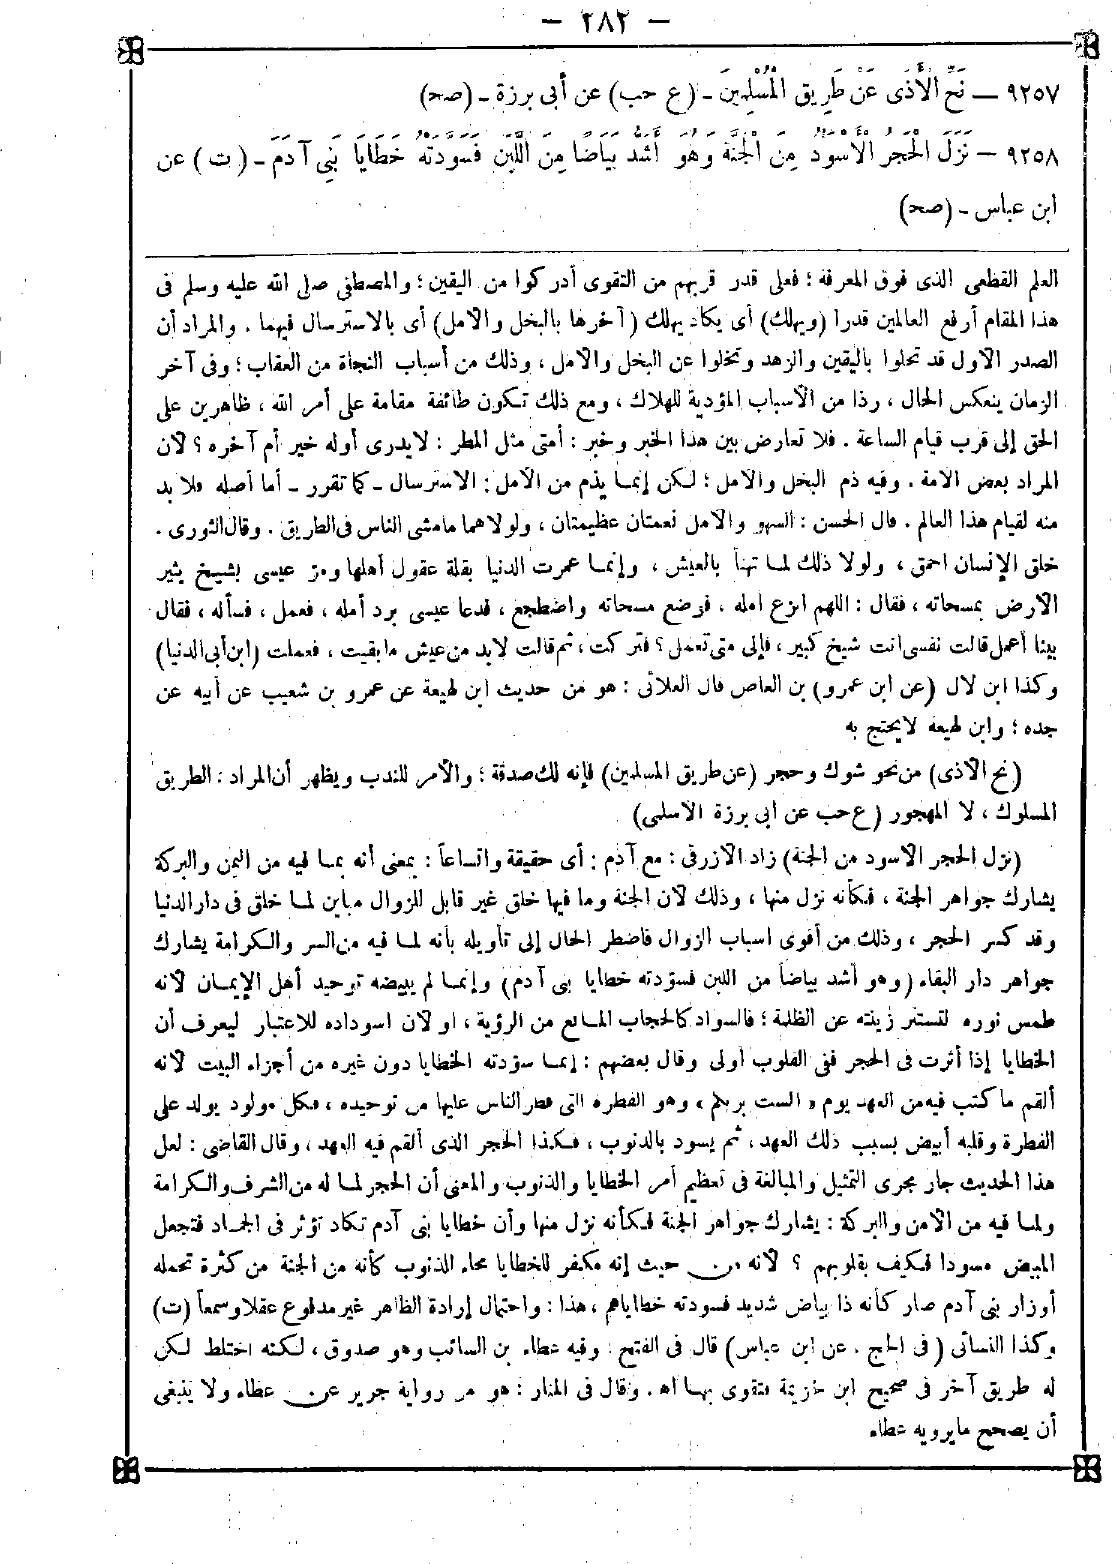 — ٢٨٢ —
٩٢٥٧ — نَحِّ الْأَذَى عَنْ طَرِيقِ الْمُسْلِمِينَ - (ع حب) عن أبى برزة - (صح)
٩٢٥٨ — نَزَلَ الْحَجَرُ الْأَسْوَدُ مِنَ الْجَنَّةِ وَهُوَ أَشَدُّ بَيَاضًا مِنَ اللَّبَنِ فَسَوَّدَتْهُ خَطَايَا بَنِي آدَمَ - (ت) عن
ابن عباس - (صح)
العلم القطعى الذى فوق المعرفة ؛ فعلى قدر قربهم من التقوى أدركوا من اليقين ؛ والمصطفى صلى الله عليه وسلم فى
هذا المقام أرفع العالمين قدرا (ويهلك) أى يكاد يهلك (آخرها بالبخل والأمل) أى بالاسترسال فيهما . والمراد أن
الصدر الأول قد تحلوا باليقين والزهد وتخلوا عن البخل والأمل ، وذلك من أسباب النجاة من العقاب ؛ وفى آخر
الزمان ينعكس الحال ، وذا من الأسباب المؤدية للهلاك ، ومع ذلك تكون طائفة مقامة على أمر الله ، ظاهرين على
الحق إلى قرب قيام الساعة . فلا تعارض بين هذا الخبر وخبر : أمتى مثل المطر : لا يدرى أوله خير أم آخره ؟ لأن
المراد بعض الأمة . وفيه ذم البخل والأمل ؛ لكن إنما يذم من الأمل : الاسترسال - كما تقرر - أما أصله فلا بد
منه لقيام هذا العالم . قال الحسن : السهو والأمل نعمتان عظيمتان ، ولولاهما مامشى الناس فى الطريق . وقال الثورى .
خلق الإنسان احمق ، ولولا ذلك لما تهنأ بالعيش ، وإنما عمرت الدنيا بقلة عقول أهلها ومر عيسى بشيخ يثير
الأرض بمسحاته ، فقال : اللهم انزع امله ، فوضع مسحاته واضطجع ، فدعا عيسى برد أمله ، فعمل ، فسأله ، فقال
بينا أعمل قالت نفسى انت شيخ كبير ، فإلى متى تعمل ؟ فتركت ، ثم قالت لابد من عيش مابقيت ، فعملت (ابن أبى الدنيا)
وكذا ابن لال (عن ابن عمرو) بن العاص قال العلائى : هو من حديث ابن لهيعة عن عمرو بن شعيب عن أبيه عن
جده ؛ وابن لهيعة لايحتج به
(نح الأذى) من نحو شوك وحجر (عن طريق المسلمين) فإنه لك صدقة ؛ والأمر للندب ويظهر أن المراد : الطريق
المسلوك ، لا المهجور (ع حب عن أبى برزة الأسلمى)
(نزل الحجر الأسود من الجنة) زاد الأزرقى : مع آدم : أى حقيقة واتساعاً : بمعنى أنه بما فيه من اليمن والبركة
يشارك جواهر الجنة ، فكأنه نزل منها ، وذلك لأن الجنة وما فيها خلق غير قابل للزوال مباين لما خلق فى دار الدنيا
وقد كسر الحجر ، وذلك من أقوى اسباب الزوال فاضطر الحال إلى تأويله بأنه لما فيه من السر والكرامة يشارك
جواهر دار البقاء (وهو أشد بياضاً من اللبن فسودته خطايا بنى آدم) وإنما لم يبيضه توحيد أهل الإيمان لأنه
طمس نوره لتستتر زينته عن الظلمة ؛ فالسواد كالحجاب المانع من الرؤية ، او لأن اسوداده للاعتبار ليعرف أن
الخطايا إذا أثرت فى الحجر ففى القلوب أولى وقال بعضهم : إنما سودته الخطايا دون غيره من أجزاء البيت لأنه
ألقم ما كتب فيه من العهد يوم « الست بربكم ، وهو الفطرة التى فطر الناس عليها من توحيده ، فكل مولود يولد على
الفطرة وقلبه أبيض بسبب ذلك العهد ، ثم يسود بالذنوب ، فكذا الحجر الذى ألقم فيه العهد ، وقال القاضى : لعل
هذا الحديث جار مجرى التمثيل والمبالغة فى تعظيم أمر الخطايا والذنوب والمعنى أن الحجر لما له من الشرف والكرامة
ولما فيه من الأمن والبركة : يشارك جواهر الجنة فكأنه نزل منها وأن خطايا بنى آدم تكاد تؤثر فى الجماد فتجعل
المبيض مسودا فكيف بقلوبهم ؟ لأنه من حيث إنه مكفر للخطايا محاء الذنوب كأنه من الجنة من كثرة تحمله
أوزار بنى آدم صار كأنه ذا بياض شديد فسودته خطاياهم ، هذا : واحتمال إرادة الظاهر غير مدفوع عقلا وسمعاً (ت)
وكذا النسائى (فى الحج . عن ابن عباس) قال فى الفتح : وفيه عطاء بن السائب وهو صدوق ، لكنه اختلط لكن
له طريق آخر فى صحيح ابن خزيمة فتقوى بها اه . وقال فى المنار : هو من رواية جرير عن عطاء ولا ينبغى
أن يصحح مايرويه عطاء